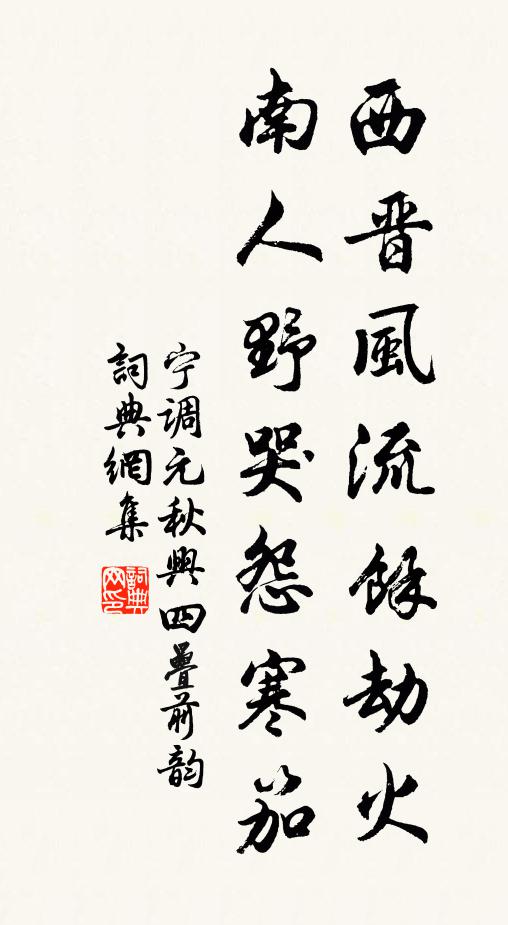 西晋風流餘劫火
南人野哭怨寒笳
宁调元秋興四疊前韵
詞典網集
詞典网印